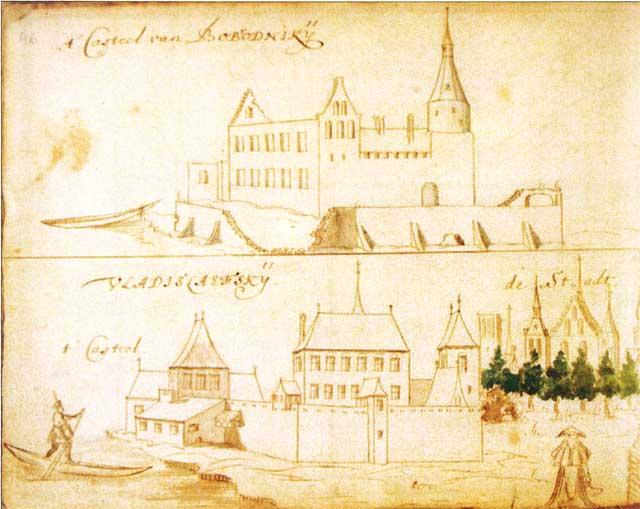 46
t' Casteel van BOBODNIKÿ
VLADISLAEFSKÿ.
de Stadt
t' Casteel.